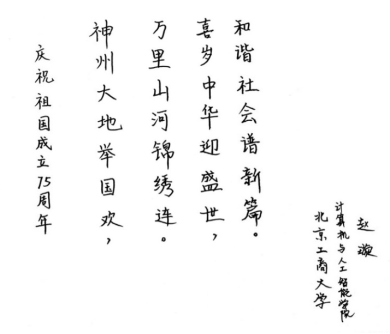 庆祝祖国成立75周年
神州大地举国欢，
万里山河锦绣连。
喜岁中华迎盛世，
和谐社会谱新篇。
北京工商大学
计算机与人工智能学院
赵璇